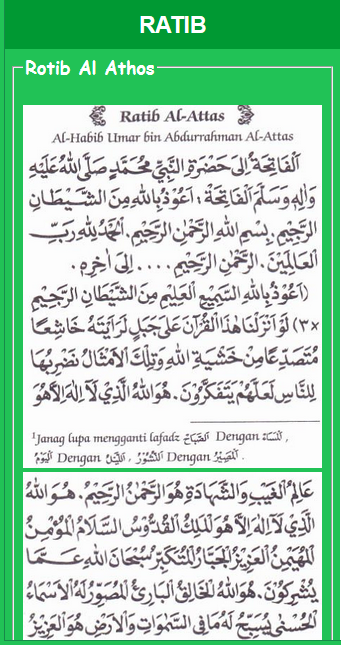 RATIB
Rotib Al Athos
Ratib Al-Attas
Al-Habib Umar bin Abdurrahman Al-Attas
اَلْفَاتِحَةُ اِلَى حَضْرَةِ النَّبِيِّ مُحَمَّدٍ صَلَّى اللهُ عَلَيْهِ
وَاٰلِهِ وَسَلَّمَ اَلْفَاتِحَةْ ، اَعُوْذُ بِاللهِ مِنَ الشَّيْطَانِ
الرَّجِيْمِ. بِسْمِ اللهِ الرَّحْمٰنِ الرَّحِيْمِ. اَلْحَمْدُ لِلّٰهِ رَبِّ
الْعَالَمِيْنَ. الرَّحْمٰنِ الرَّحِيْمِ .... اِلَى اٰخِرِهِ .
(اَعُوْذُ بِاللهِ السَّمِيْعِ الْعَلِيْمِ مِنَ الشَّيْطَانِ الرَّجِيْمِ
×٣) لَوْ اَنْزَلْنَا هٰذَا الْقُرْاٰنَ عَلَى جَبَلٍ لَرَاَيْتَهُ خَاشِعًا
مُتَصَدِّعًا مِنْ خَشْيَةِ اللهِ وَتِلْكَ الْاَمْثَالُ نَضْرِبُهَا
لِلنَّاسِ لَعَلَّهُمْ يَتَفَكَّرُوْنَ. هُوَ اللهُ الَّذِيْ لَا اِلٰهَ اِلَّا هُوَ
¹Janag lupa mengganti lafadz الصَّبَاحْ Dengan الْمَسَاءْ ,
الْيَوْمْ Dengan اللَّيْلْ . النُّشُوْرْ Dengan الْمَصِيْرْ .
عَالِمُ الْغَيْبِ وَالشَّهَادَةِ هُوَ الرَّحْمٰنُ الرَّحِيْمُ. هُوَ اللهُ
الَّذِيْ لَا اِلٰهَ اِلَّا هُوَ الْمَلِكُ الْقُدُّوْسُ السَّلَامُ الْمُؤْمِنُ
الْمُهَيْمِنُ الْعَزِيْزُ الْجَبَّارُ الْمُتَكَبِّرُ سُبْحَانَ اللهِ عَمَّا
يُشْرِكُوْنَ. هُوَ اللهُ الْخَالِقُ الْبَارِئُ الْمُصَوِّرُ لَهُ الْاَسْمَاءُ
الْحُسْنٰى يُسَبِّحُ لَهُ مَا فِى السَّمٰوَاتِ وَالْاَرْضِ وَهُوَ الْعَزِيْزُ